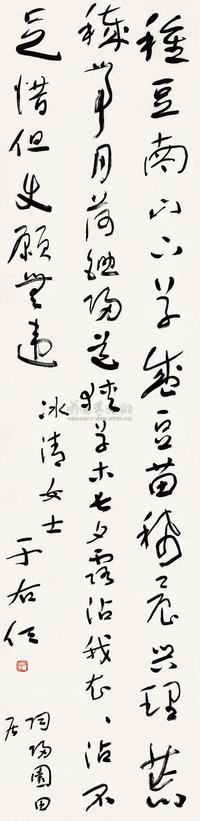 種豆南山下草盛豆苗稀晨興理荒
穢帶月荷鋤歸道狹草木長夕露沾我衣、沾不
足惜但使願無違
冰清女士
于右任
陶歸園田
居